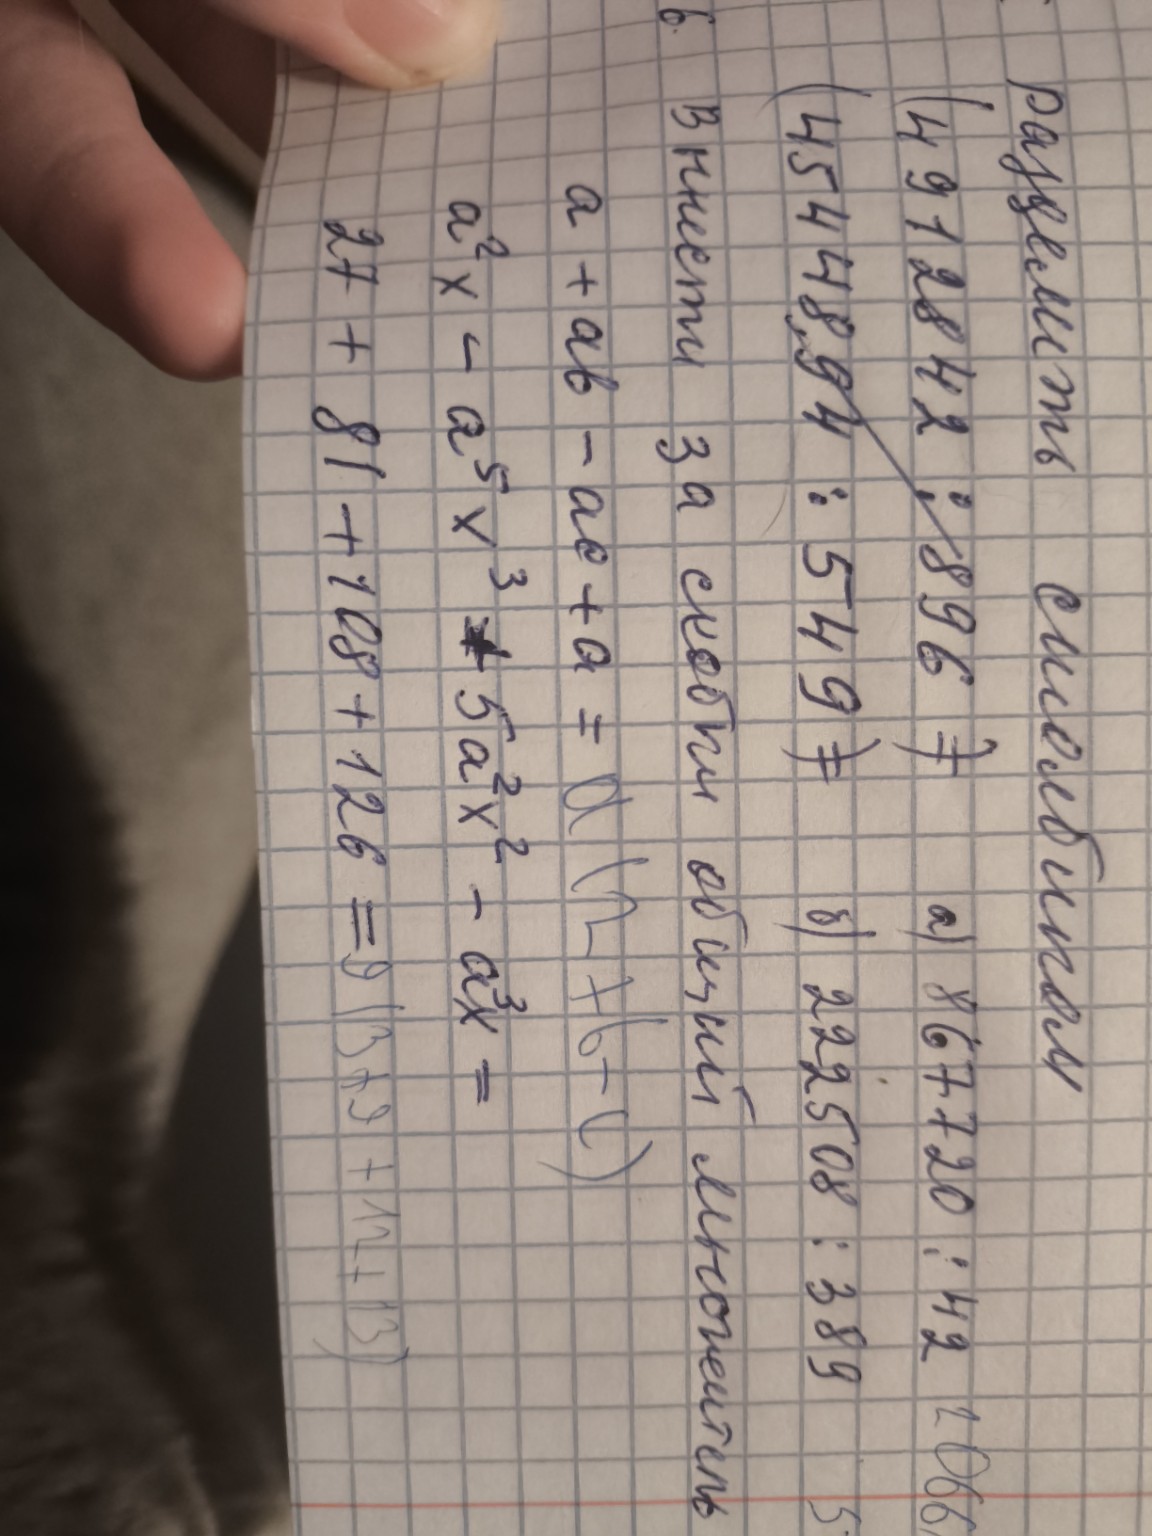 Разделить столбиком
(49128842 : 896)= а) 867720 : 42 2066
(45448,94 : 549)= б) 222508 : 389 5
6. Вынести за скобки общий множитель
a + ab - ac + a = a (2 + b - c)
a²x - a⁵x³ + 5a²x² - a³x =
27 + 81 + 108 + 126 = 9 (3 + 9 + 12 + 13)